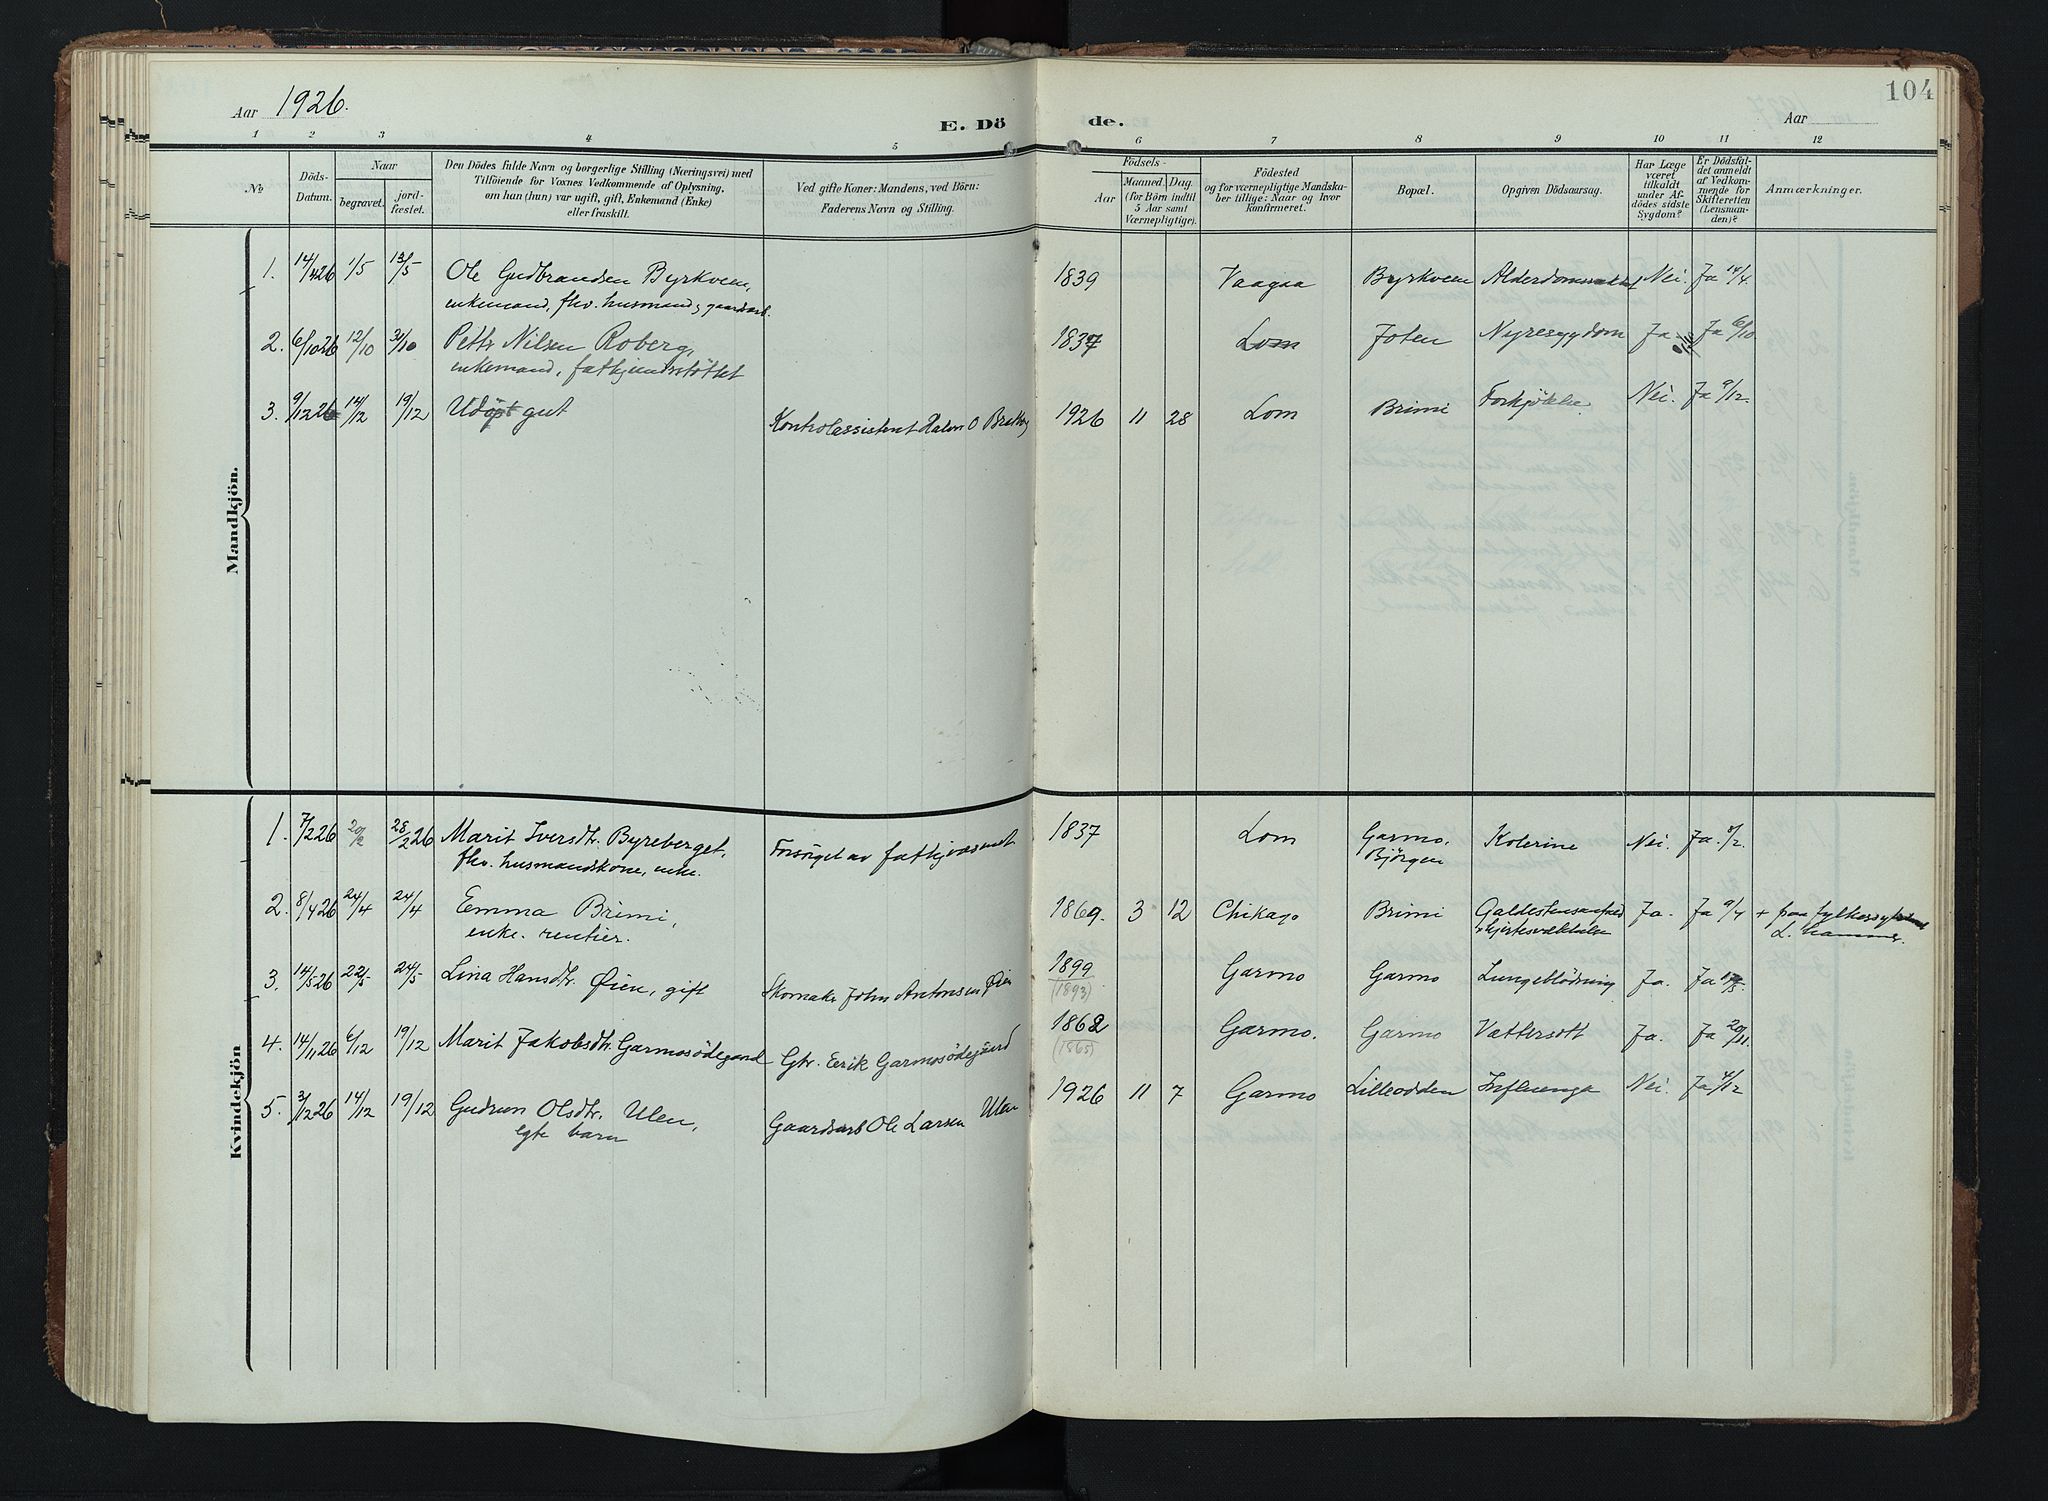 104
Aar 1926.
E. Dö de.
Aar
1 2 3 4 5 6 7 8 9 10 11 12
No
Döds-Datum.
Naar
begravet.
jord-fæstet.
Den Dödes fulde Navn og borgerlige Stilling (Næringsvei) med
Tilföiende for Voxnes Vedkommende af Oplysning,
om han (hun) var ugift, gift, Enkemand (Enke)
eller fraskilt.
Ved gifte Koner: Mandens, ved Börn:
Faderens Navn og Stilling.
Födsels-
Aar
Maaned. Dag.
(for Börn indtil
5 Aar samt
Værnepligtige).
Födested
og for værnepligtige Mandska-
ber tillige: Naar og hvor
konfirmeret.
Bopæl.
Opgiven Dödsaarsag.
Har Læge
været
tilkaldt
under Af-
dödes sidste
Sygdom?
Er Dödsfal-
det anmeldt
af Vedkom-
mende for
Skifteretten
(Lensman-
den)?
Anmærkninger.
Mandkjön.
1. 14/4 26 1/5 13/5 Ole Gudbrandsen Byrkveen, 1839 Vaagaa Byrkveen Nei. Ja 14/4.
enkemand, fhv. husmand, gaardarb.
2. 6/10 26 12/10 31/10 Petter Nilsen Roberg, 1837 Lom Joten Nyresygdom Ja Ja 6/10
enkemand, fatkjendsstöttet
3. 9/12 26 14/12 19/12 Udöpt gut Kontrolassistent O 1926 11 28 Lom Brimi Forkjölelse. Nei. Ja 9/12.
Kvindekjön
1. 7/2 26 20/2 28/2 26 Marit Iversdtr. Byreberget, Forsörget av fatkjvæsenet 1837 Lom Garmo, Kolerine Nei. Ja. 8/2.
fhv. husmandskone, enke. Björgen
2. 8/4 26 24/4 24/4 Emma Brimi, 1869. 3 12 Chikago Brimi Galdestensanfald Ja. Ja 9/4 + paa fylkessyk
enke. rentier. hjertesvækkelse L. hammer.
3. 14/5 26 22/5 24/5 Lina Hansdtr. Øien, gift Skomaker John Antonsen Øien 1899 Garmo Garmo Lungeblödning Ja. Ja
(1893)
4. 14/11 26 6/12 19/12 Marit Jakobsdtr. Garmosödegaard Gbr. Erik Garmosödegaard 1862 Garmo. Garmo Vattersott Ja. Ja 20/11.
(1865)
5. 3/12 26 14/12 19/12 Gudrun Olsdtr. Ulen, Gaardsarb Ole Larsen Ulen 1926 11 7 Garmo Lilleodden Influenza Nei. Ja 4/12
egte barn